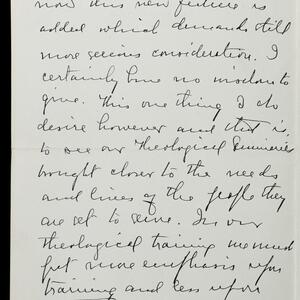 now this new feature is
added which demands still
more serious consideration. I
certainly have no wisdom to
give. This one thing I do
desire however and that is,
to see our Theological Seminaries
brought closer to the needs
and lives of the people they
are set to serve. In our
theological training we must
put more emphasis upon
training and less upon